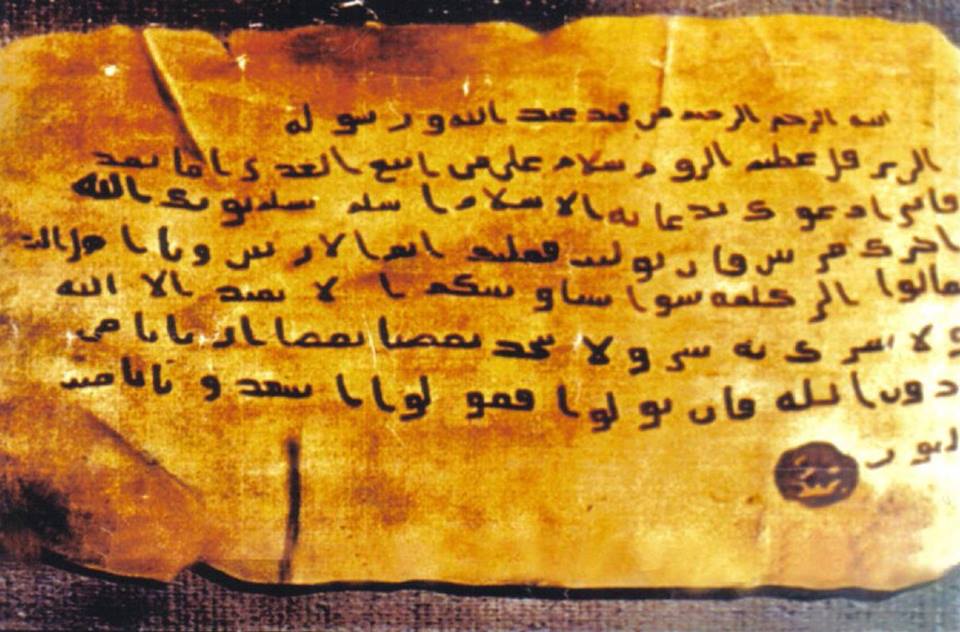 بسم الله الرحمن الرحيم من محمد عبد الله و رسوله
الى هرقل عظيم الروم سلام على من اتبع الهدى اما بعد
فانى ادعوك بدعاية الاسلام اسلم تسلم يوتك الله
اجرك مرتين فان توليت فعليك اثم الاريسين ويا اهل الكتاب
تعالوا الى كلمة سوا بيننا وبينكم الا نعبد الا الله
ولا نشرك به شيا ولا يتخذ بعضنا بعضا اربابا من
دون الله فان تولوا فقولوا اشهدوا بانا مسلمون